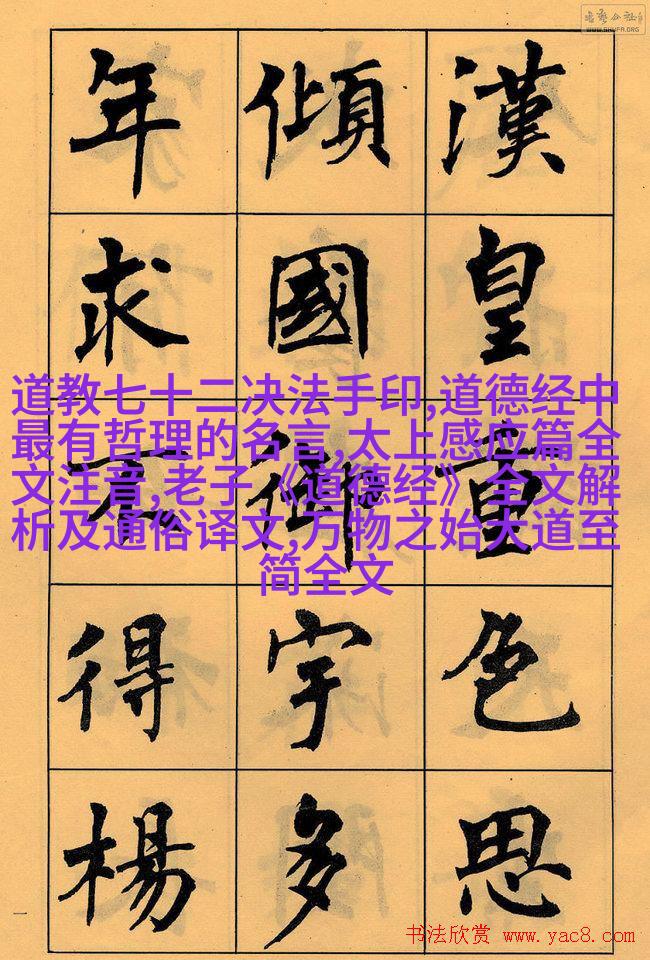 漢皇重色思
傾國御宇多
年求不得楊
道教七十二决法手印,道德经中
最有哲理的名言,太上感应篇全
文注音,老子《道德经》全文解
析及通俗译文,万物之始大道至
简全文
一
WWW.SHUFA.ORG
书法欣赏 www.yac8.com